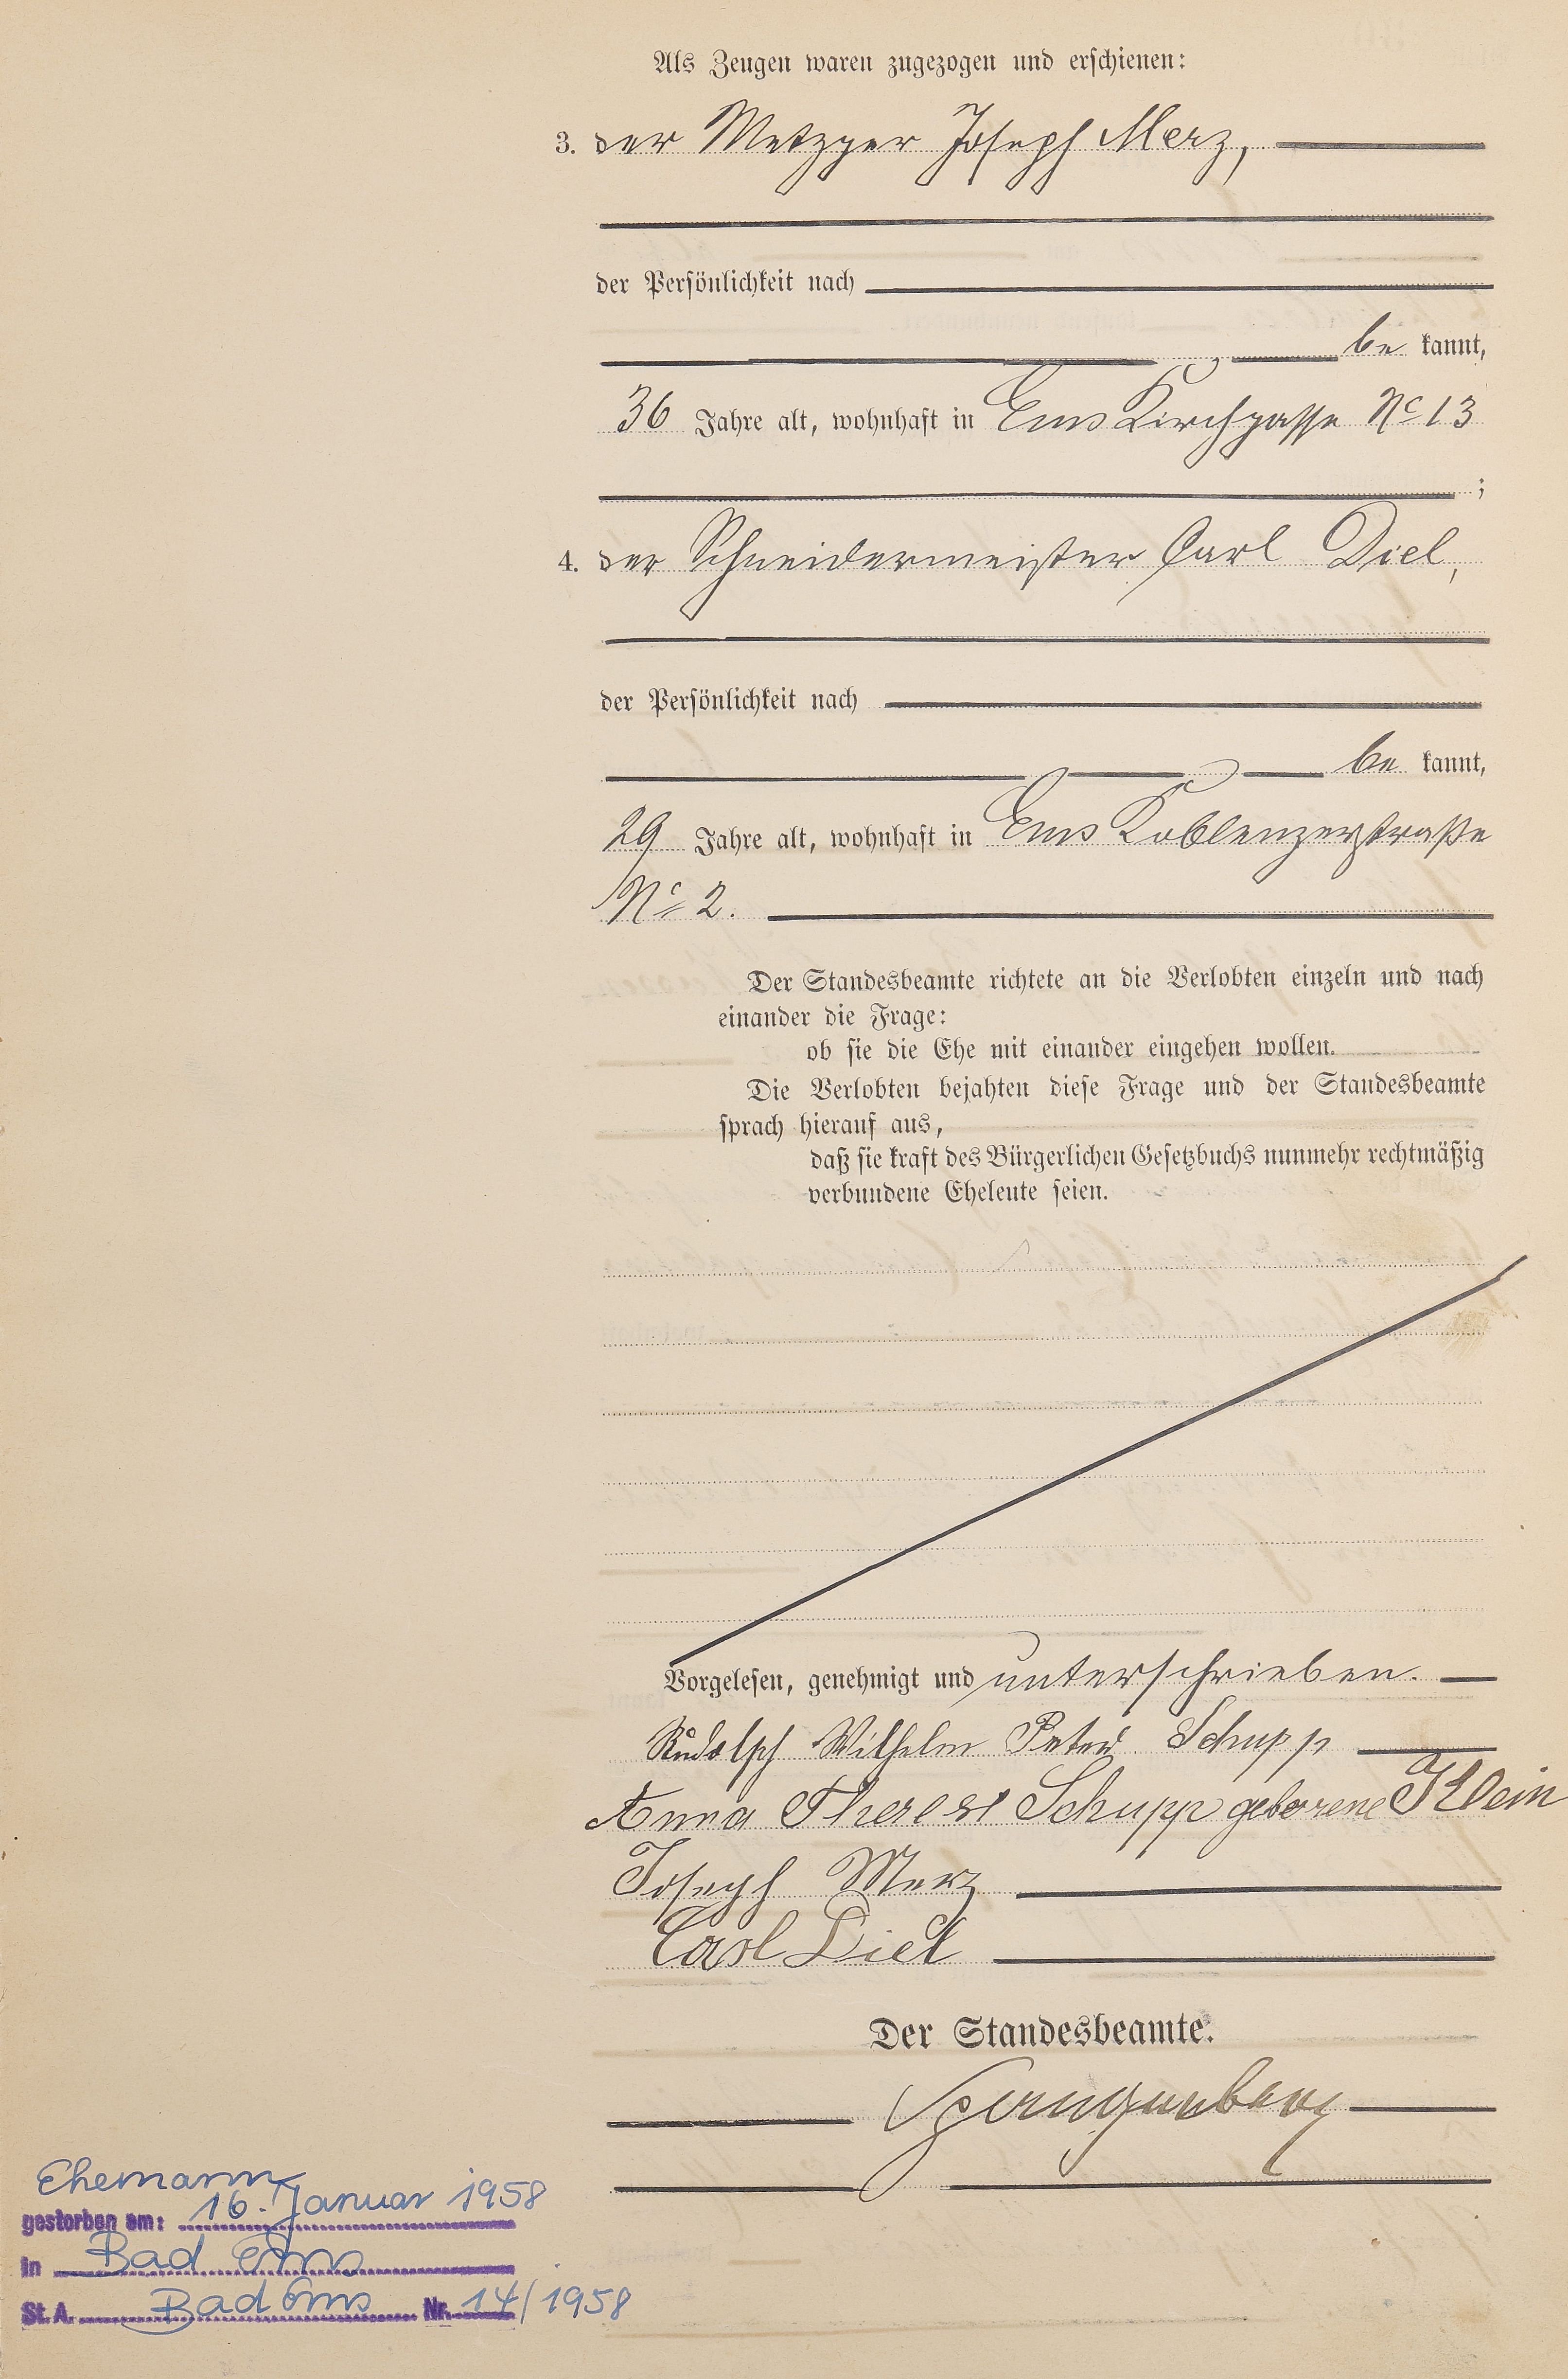 Als Zeugen waren zugezogen und erschienen:
3. der Metzger Joseph Merz,
der Persönlichkeit nach
be kannt,
36 Jahre alt, wohnhaft in Ems Kirchgasse No 13
;
4. der Schneidermeister Carl Diel,
der Persönlichkeit nach
be kannt,
29 Jahre alt, wohnhaft in Ems Koblenzerstraße
No 2.
Der Standesbeamte richtete an die Verlobten einzeln und nach
einander die Frage:
ob sie die Ehe mit einander eingehen wollen.
Die Verlobten bejahten diese Frage und der Standesbeamte
sprach hierauf aus,
daß sie kraft des Bürgerlichen Gesetzbuchs nunmehr rechtmäßig
verbundene Eheleute seien.
Vorgelesen, genehmigt und unterschrieben.
Rudolph Wilhelm Peter Schupp
Anna Therese Schupp geborene Klein
Joseph Merz
Carl Diel
Der Standesbeamte.
Ehemann
gestorben am: 16. Januar 1958
in Bad Ems
St. A. Bad Ems Nr. 14/1958